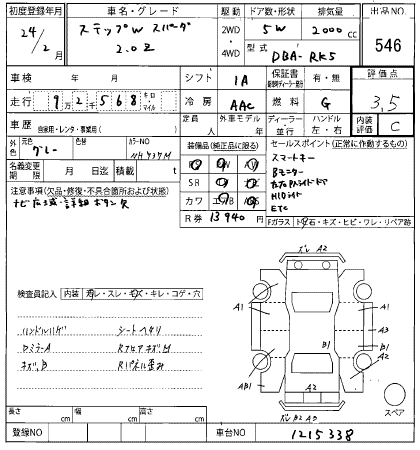 初度登録年月 車名・グレード 駆動 ドア数・形状 排気量 出品NO
24/2月 ステップW スパーダ 2.0Z 2WD・4WD 5W 2000cc 546
型式 DBA-RK5
車検 年 月 シフト IA 保証書 有・無 評価点
走行 9万2千568 キロ マイル 冷房 AAC 燃料 G 3,5
車歴 自家用・レンタ・事業用( ) 定員 人 外車モデル ディーラー・並行 ハンドル 左・右 内装評価 C
外色 元色 グレー 色替 カラーNO NH737M
装備品(純正品に限る) セールスポイント(正常に作動するもの)
名義変更期限 月 日迄 積載 t
スマートキー
Bモニター
注意事項(欠品・修復・不具合箇所および状態)
SR ナビ TV
カワ エアB
HIDライト
ETC
R券 13940円
Fガラス トビ石・キズ・ヒビ・ワレ・リペア跡
検査員記入 内装 ヨゴレ・スレ・キズ・キレ・コゲ・穴
ハンドルハゲ シートヘタリ
DミラーA
キズ,B Rパネル歪み
ズレ A2
A1 A1
A3
B1 B1
AB1 A1
A2
ズレ B2 A3
スペア
長さ cm 幅 cm 高さ cm
登録NO 車台NO 1215338